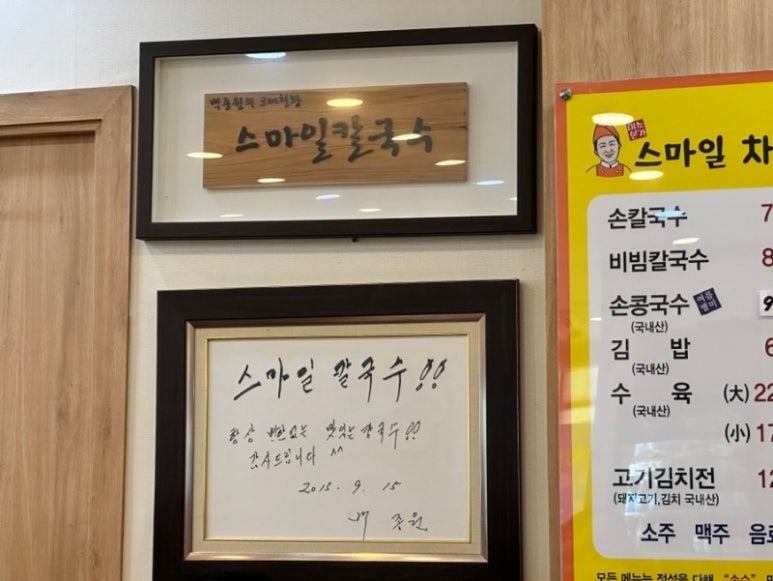 백종원의 3대천왕
스마일칼국수
스마일 칼국수!!
항상 변함없는 맛있는 칼국수!!
감사드립니다 ^^
2015. 9. 15
백 종원
스마일 차
손칼국수 7
비빔칼국수 8
손콩국수 여름별미 9
(국내산)
김 밥 6
(국내산)
수 육 (大) 22
(국내산)
(小) 17
고기김치전 12
(돼지고기,김치 국내산)
소주 맥주 음료
모든 메뉴는 정성을 다해 "손수"